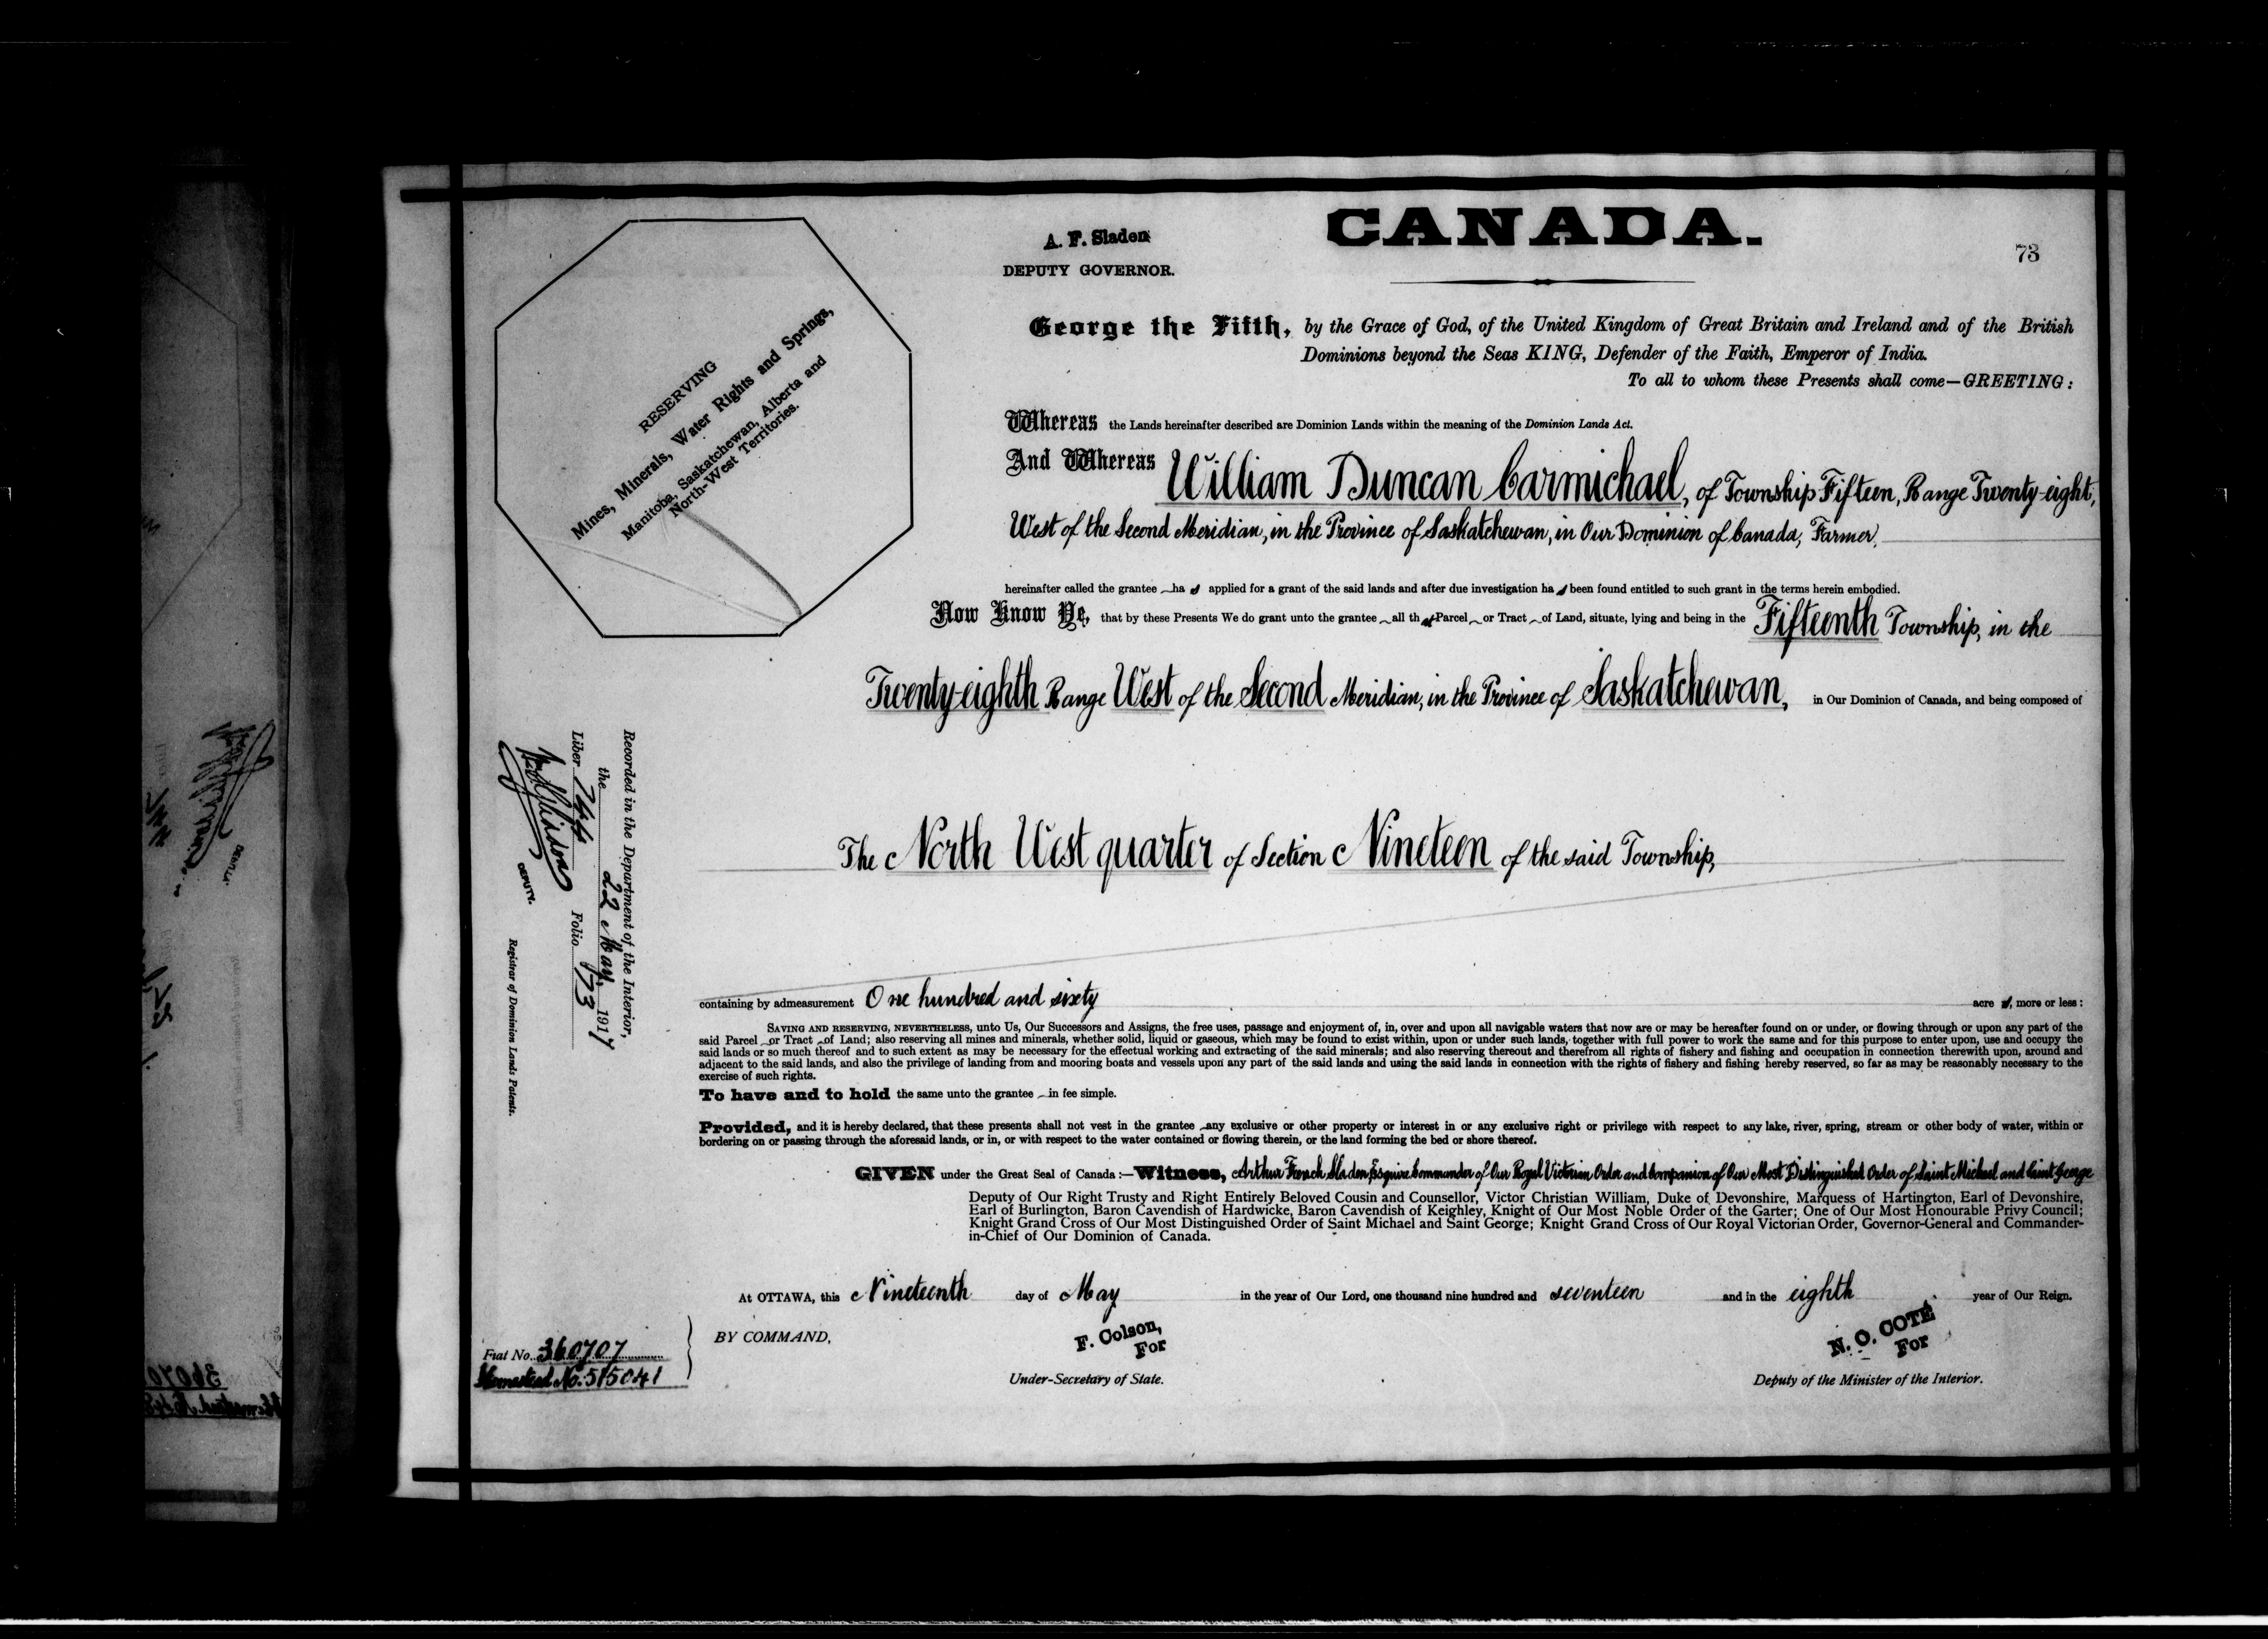 CANADA.
A. F. Sladen
DEPUTY GOVERNOR.
73
RESERVING
Mines, Minerals, Water Rights and Springs,
Manitoba, Saskatchewan, Alberta and
North-West Territories.
George the Fifth, by the Grace of God, of the United Kingdom of Great Britain and Ireland and of the British
Dominions beyond the Seas KING, Defender of the Faith, Emperor of India.
To all to whom these Presents shall come—GREETING:
Whereas the Lands hereinafter described are Dominion Lands within the meaning of the Dominion Lands Act.
And Whereas William Duncan Carmichael, of Township Fifteen, Range Twenty-eight,
West of the Second Meridian, in the Province of Saskatchewan, in Our Dominion of Canada, Farmer,
hereinafter called the grantee has applied for a grant of the said lands and after due investigation has been found entitled to such grant in the terms herein embodied.
Now Know Ye, that by these Presents We do grant unto the grantee all that Parcel or Tract of Land, situate, lying and being in the Fifteenth Township, in the
Twenty-eighth Range West of the Second Meridian, in the Province of Saskatchewan, in Our Dominion of Canada, and being composed of
Recorded in the Department of the Interior,
the 22 May, 1917
Liber 744 Folio 73
DEPUTY.
Registrar of Dominion Lands Patents.
The North West quarter of Section Nineteen of the said Township,
containing by admeasurement One hundred and sixty acres, more or less:
SAVING AND RESERVING, NEVERTHELESS, unto Us, Our Successors and Assigns, the free uses, passage and enjoyment of, in, over and upon all navigable waters that now are or may be hereafter found on or under, or flowing through or upon any part of the
said Parcel or Tract of Land; also reserving all mines and minerals, whether solid, liquid or gaseous, which may be found to exist within, upon or under such lands, together with full power to work the same and for this purpose to enter upon, use and occupy the
said lands or so much thereof and to such extent as may be necessary for the effectual working and extracting of the said minerals; and also reserving thereout and therefrom all rights of fishery and fishing and occupation in connection therewith upon, around and
adjacent to the said lands, and also the privilege of landing from and mooring boats and vessels upon any part of the said lands and using the said lands in connection with the rights of fishery and fishing hereby reserved, so far as may be reasonably necessary to the
exercise of such rights.
To have and to hold the same unto the grantee in fee simple.
Provided, and it is hereby declared, that these presents shall not vest in the grantee any exclusive or other property or interest in or any exclusive right or privilege with respect to any lake, river, spring, stream or other body of water, within or
bordering on or passing through the aforesaid lands, or in, or with respect to the water contained or flowing therein, or the land forming the bed or shore thereof.
GIVEN under the Great Seal of Canada:—Witness, Arthur French Sladen, Esquire Commander of Our Royal Victorian Order and Companion of Our Most Distinguished Order of Saint Michael and Saint George
Deputy of Our Right Trusty and Right Entirely Beloved Cousin and Counsellor, Victor Christian William, Duke of Devonshire, Marquess of Hartington, Earl of Devonshire,
Earl of Burlington, Baron Cavendish of Hardwicke, Baron Cavendish of Keighley, Knight of Our Most Noble Order of the Garter; One of Our Most Honourable Privy Council;
Knight Grand Cross of Our Most Distinguished Order of Saint Michael and Saint George; Knight Grand Cross of Our Royal Victorian Order, Governor-General and Commander-
in-Chief of Our Dominion of Canada.
At OTTAWA, this Nineteenth day of May in the year of Our Lord, one thousand nine hundred and seventeen and in the eighth year of Our Reign.
BY COMMAND,
F. Colson,
For
Under-Secretary of State.
N. O. COTÉ
For
Deputy of the Minister of the Interior.
Fiat No. 360707
Homestead No. 515041